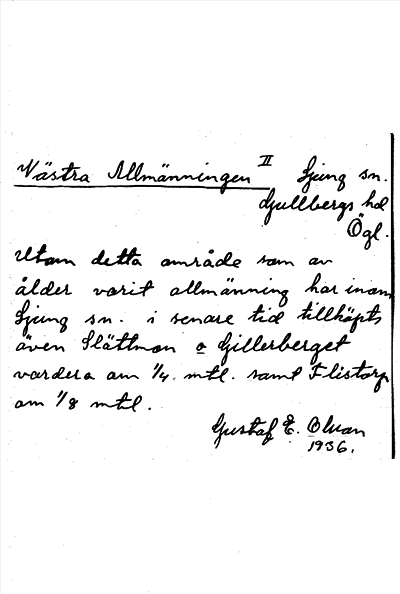 Västra Allmänningen II Ljung sn.
Gullbergs hd
Ögl.
Utom detta område som av
ålder varit allmänning har inom
Ljung sn. i senare tid tillköpts
även Slättmon o Gillerberget
vardera om 1/4 mtl. samt Flistorp
om 1/8 mtl.
Gustaf E. Olsson
1936.